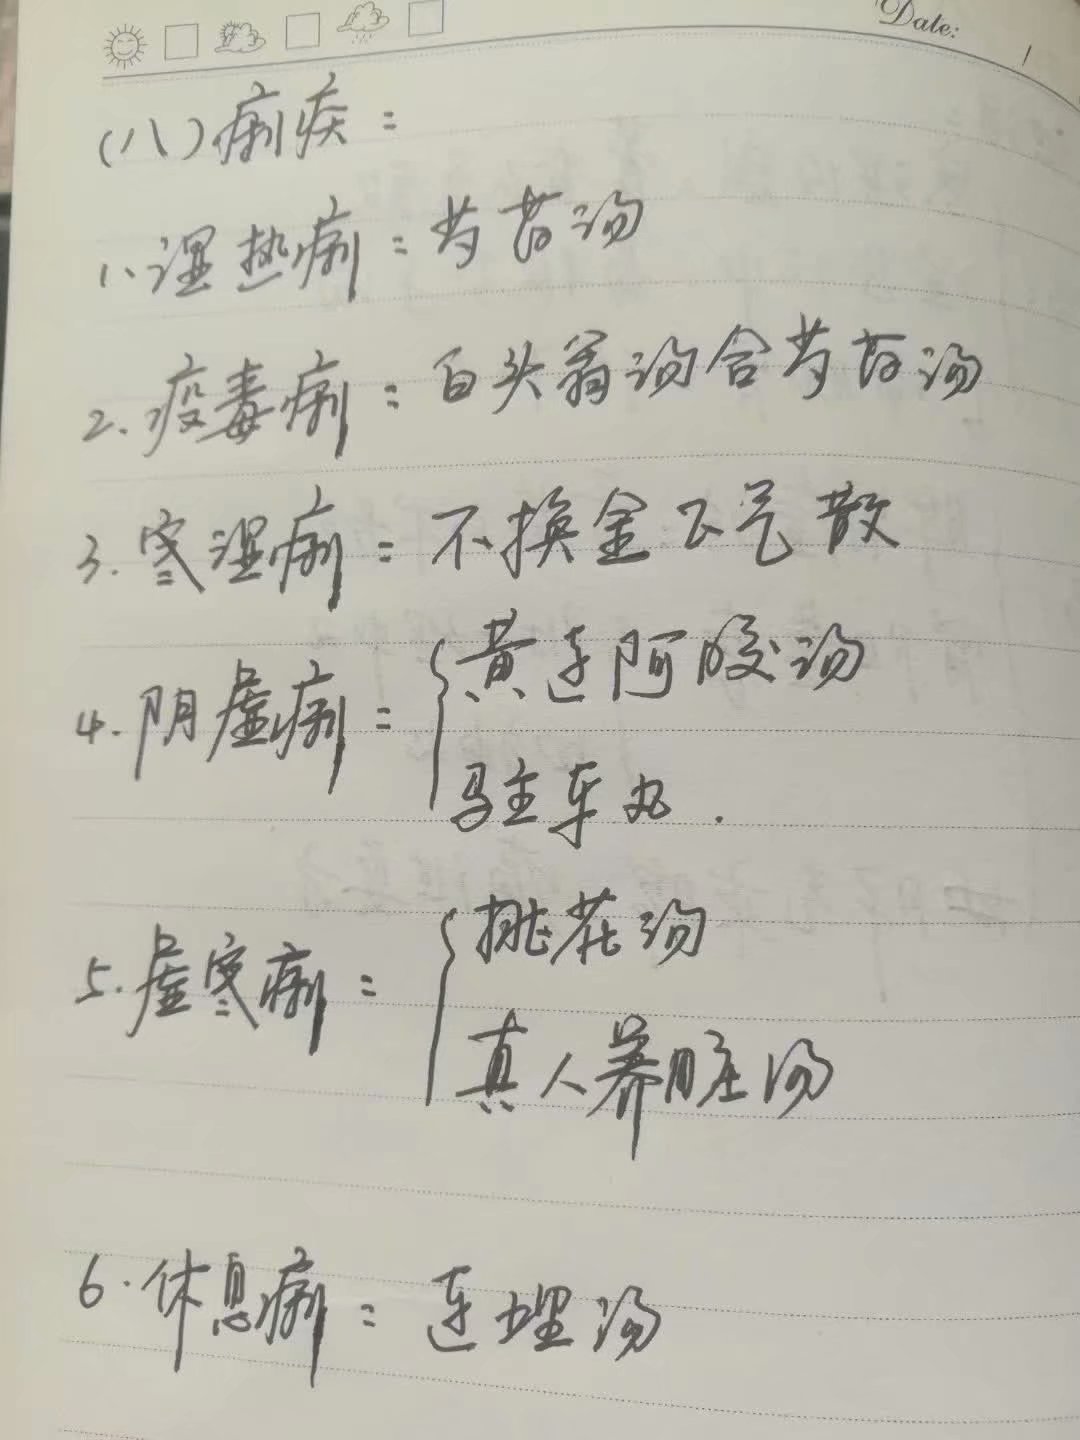 Date:
(八)痢疾：
1、湿热痢：芍药汤
2.疫毒痢：白头翁汤合芍药汤
3.寒湿痢：不换金正气散
4.阴虚痢：{黄连阿胶汤
驻车丸.
5.虚寒痢：{桃花汤
真人养脏汤
6.休息痢：连理汤